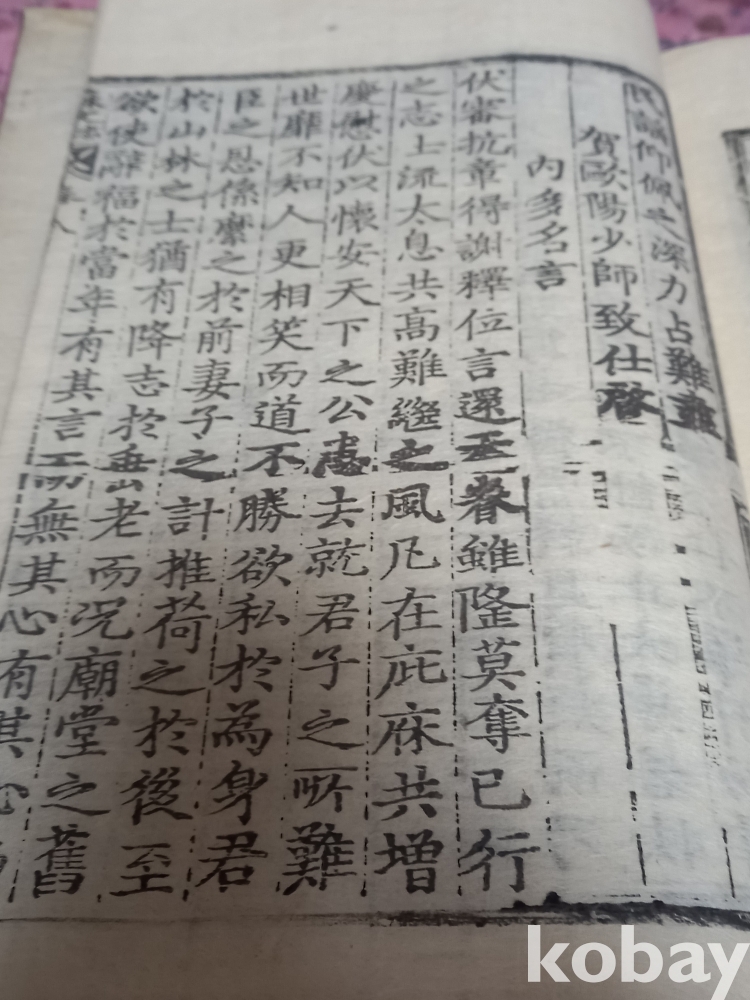 民謡仰佩之深力占難𨤲
賀歐陽少師致仕啓
內多名言
伏審抗章得謝釋位言還天眷雖隆莫奪已行
之志士流太息共高難繼之風凡在庇庥共增
慶慰伏以懷安天下之公患去就君子之所難
世靡不知人更相笑而道不勝欲私於為身君
臣之恩係縻之於前妻子之計推荷之於後至
於山林之士猶有降志於垂老而况廟堂之舊
欲使辭福於當年有其言而無其心有其心
kobay